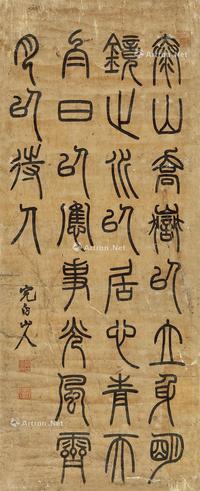 泰山喬嶽以立身明
鏡止水以居心青天
白日以應事光風霽
月以待人
完白山人
Artron.Net
Artron.Net
Artron.Net
Artron.Net